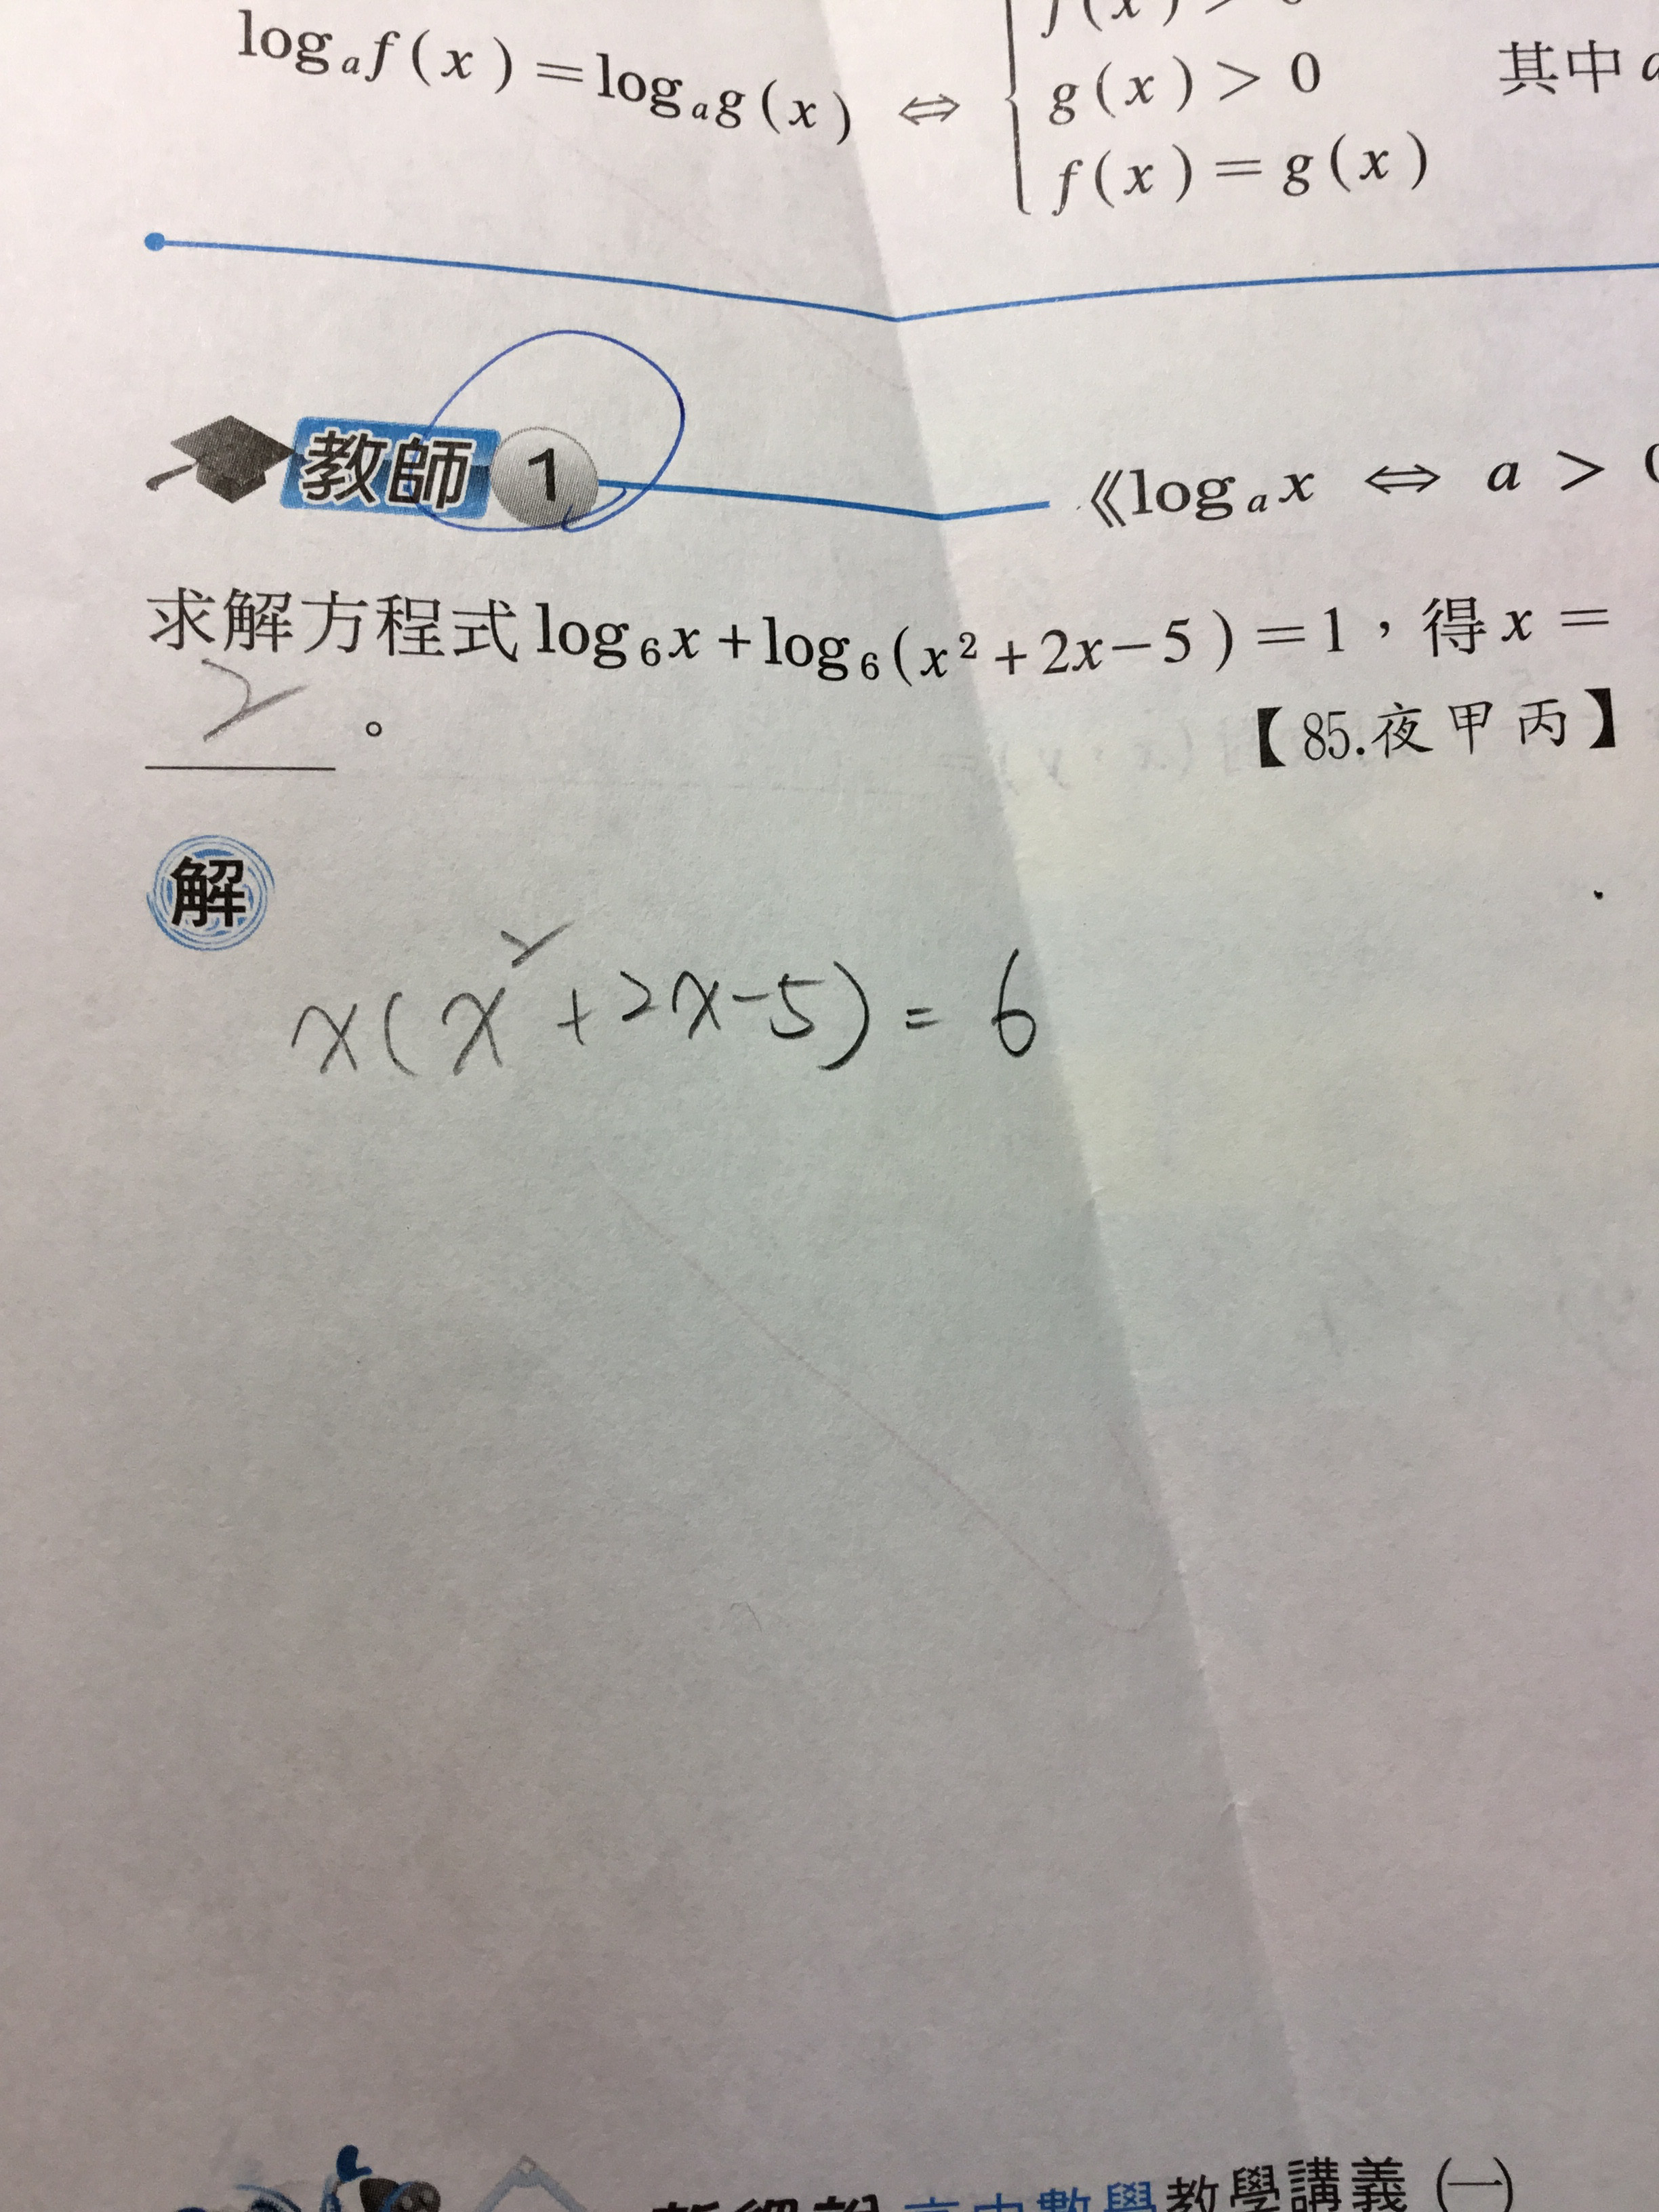 log_a f(x)=log_a g(x) ⇔ { g(x)>0 其中
f(x)=g(x)
教師 1 《log_a x ⇔ a>0
求解方程式log₆x+log₆(x²+2x−5)=1，得x=
2 。
【85.夜甲丙】
解
x(x²+2x-5)=6
高中數學教學講義(一)